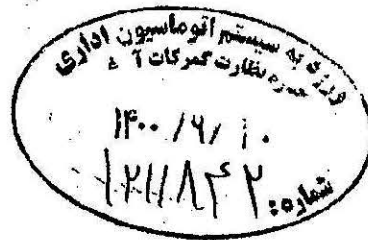 ورود به سیستم اتوماسیون اداری
حوزه نظارت گمرکات آ غ
۱۴۰۰/۶/۱۰
شماره: ۱۲۱۱۸۴۲